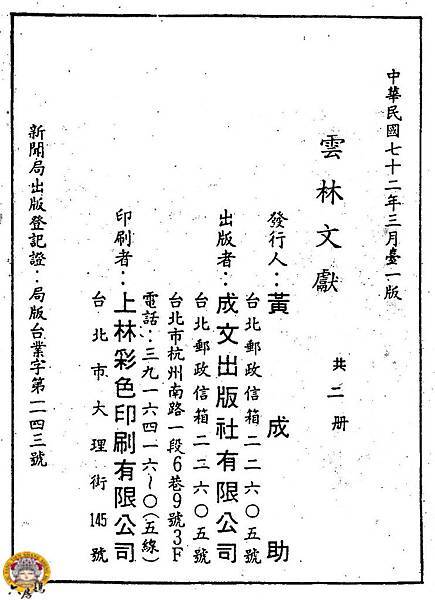 中華民國七十二年三月臺一版
雲林文獻
共二册
發行人：黃成助
台北郵政信箱二二六〇五號
出版者：成文出版社有限公司
台北郵政信箱二二六〇五號
台北市杭州南路一段6巷9號3F
電話：三九一六四一六～〇（五線）
印刷者：上林彩色印刷有限公司
台北市大理街145號
新聞局出版登記證：局版台業字第一一四三號